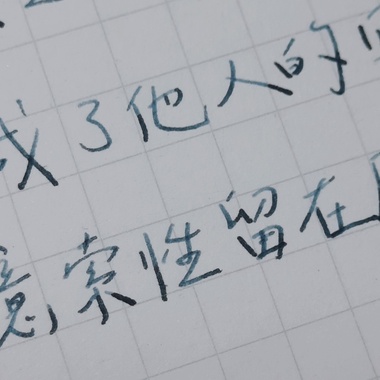 成了他人的
意索性留在